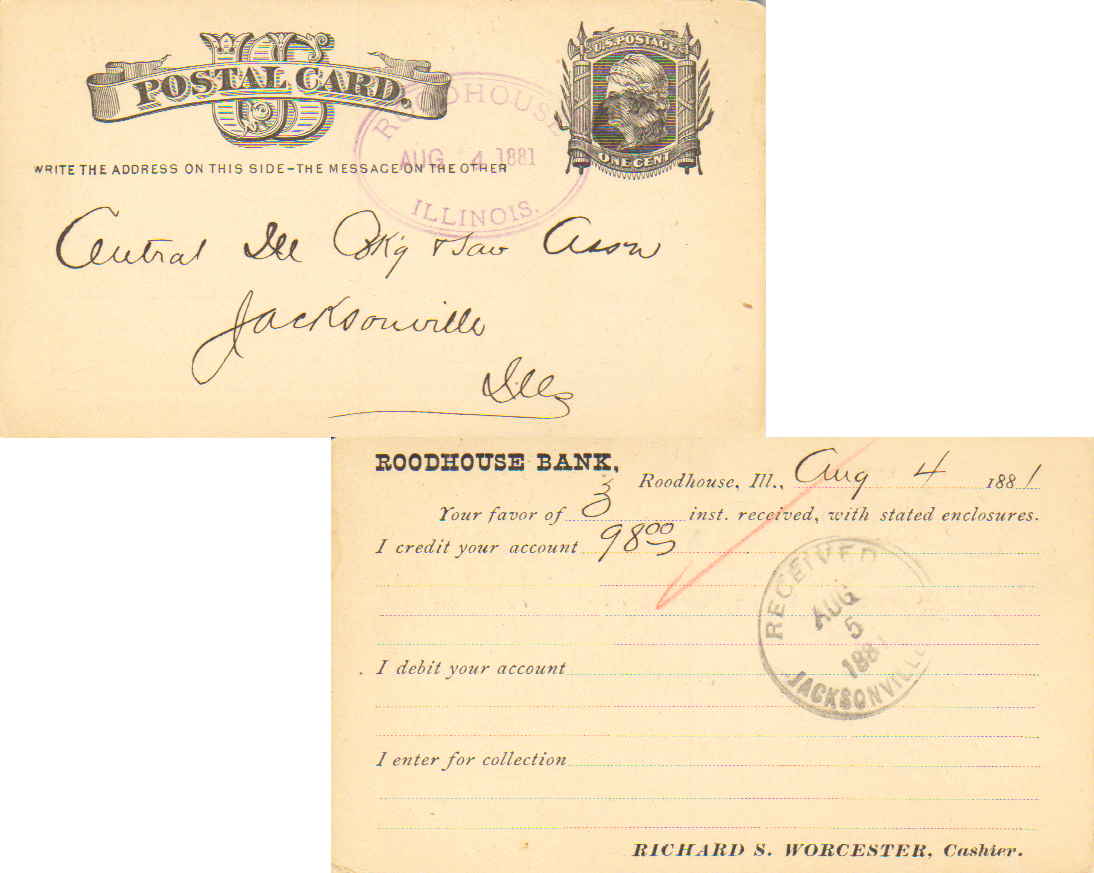 US
POSTAL CARD.
U.S. POSTAGE
ONE CENT
ROODHOUSE
AUG 4 1881
ILLINOIS.
WRITE THE ADDRESS ON THIS SIDE-THE MESSAGE ON THE OTHER
Central Ill Bkg & Sav Assn
Jacksonville
Ills
ROODHOUSE BANK,
Roodhouse, Ill., Aug 4 1881
Your favor of 3 inst. received, with stated enclosures.
I credit your account 98 00
RECEIVED
AUG
5
1881
JACKSONVILLE
I debit your account
I enter for collection
RICHARD S. WORCESTER, Cashier.